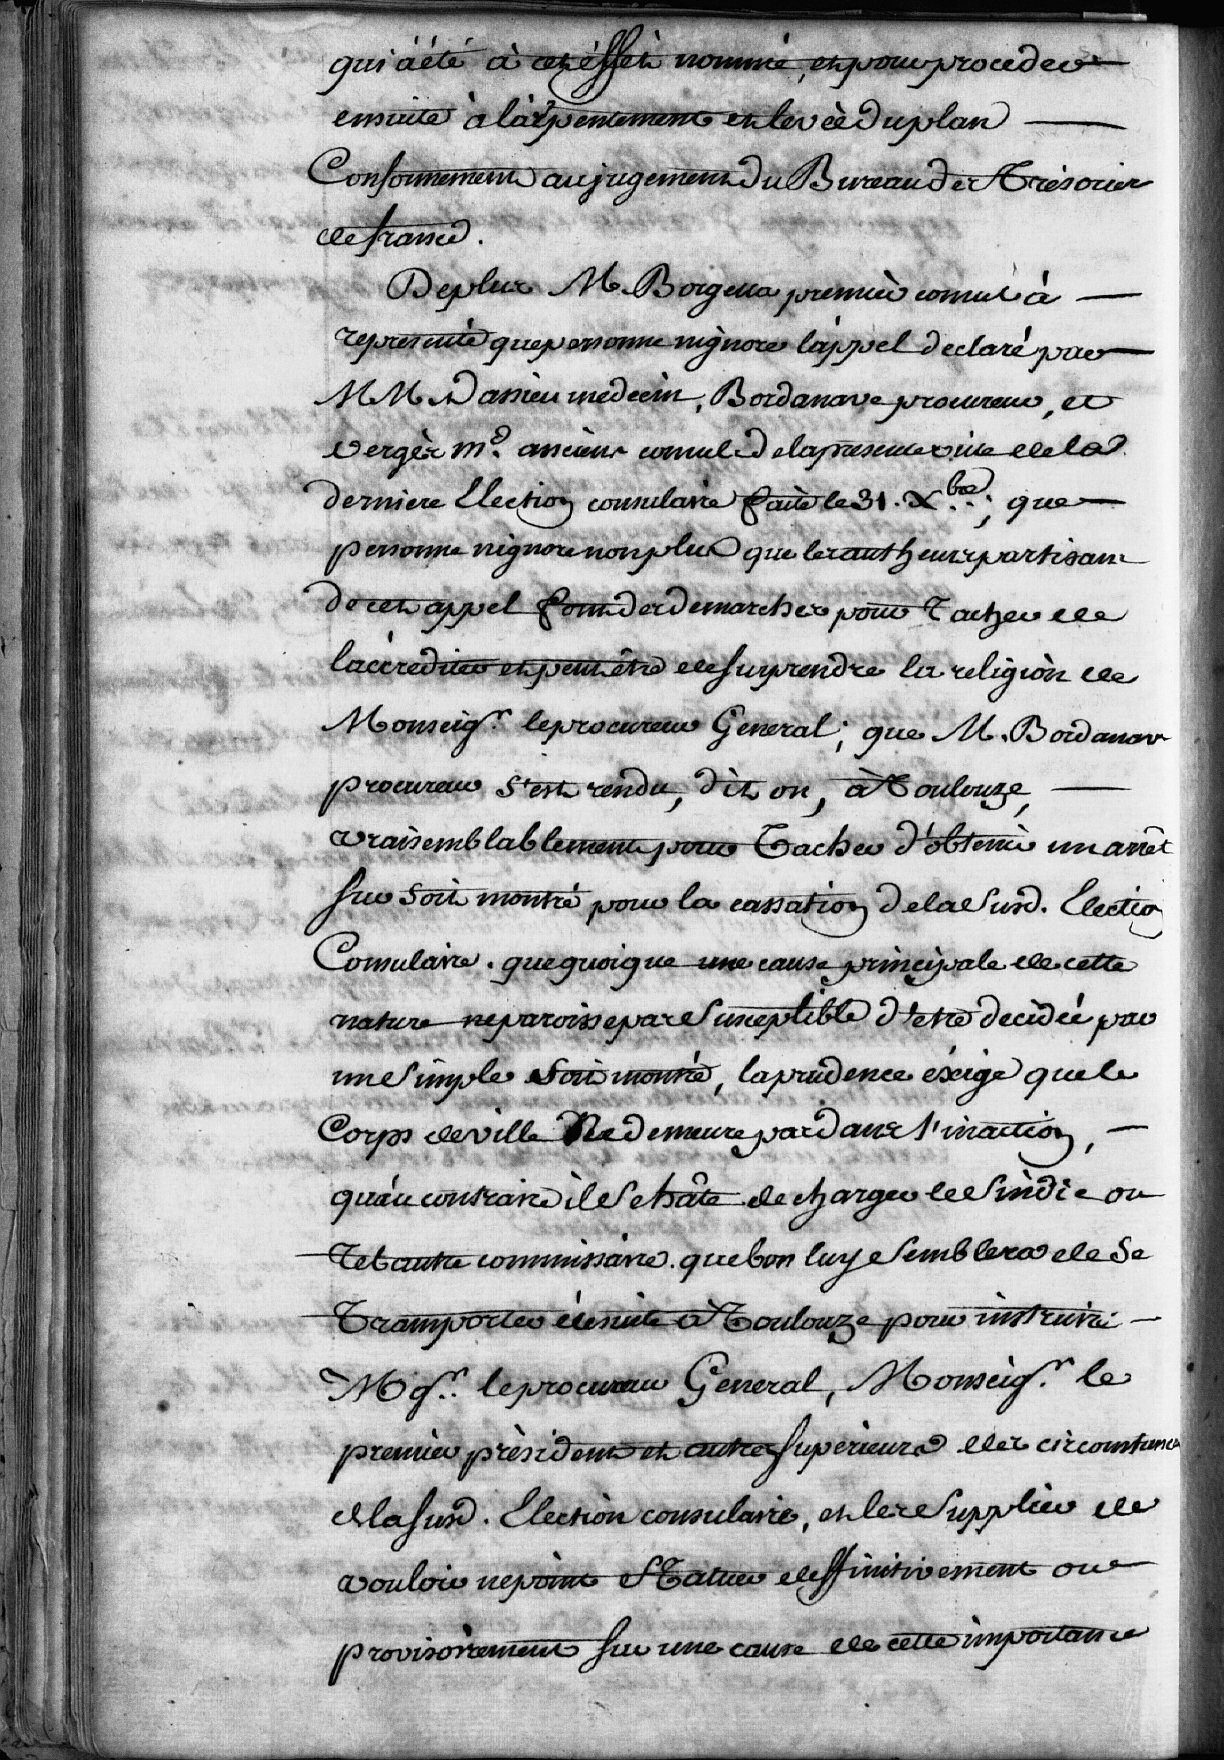 qui a été à cet éffet nommé, et pour proceder
ensuite à l'arpentement et levée du plan
Conformement au jugement du Bureau des Trésoriers
de france.
De plus M. Borgella premier consul à
representé que personne n'ignore l'appel declaré par
MM. Dassieu medecin, Bordanave procureur, et
verger md. anciens consuls de la presente ville de la
derniere Election consulaire faite le 31. Xbre.; que
personne n'ignore non plus que les autheurs partisans
de cet appel font des demarches pour Tacher de
l'accrediter et peut être de surprendre la religion de
Monseigr. le procureur General; que M. Bordanave
procureur s'est rendu, dit on, à Toulouze,
vraisemblablement pour Tacher d'obtenir un arrêt
sur soit montré pour la cassation de la susd. Election
Consulaire. que quoique une cause principale de cette
nature ne paroisse pas susceptible d'etre decidée par
un simple soit montré, la prudence éxige que le
Corps de ville Ne demeure pas dans l'inaction,
qu'au contraire il se hâte de charger le sindic ou
Tel autre commissaire. que bon luy semblera de se
Transporter ensuite à Toulouze pour instruire
Mgr. le procureur General, Monseigr. le
premier président et autres superieurs des circonstances
de la susd. Election consulaire, et les supplier de
vouloir ne point Statuer deffinitivement ou
provisoirement sur une cause de cette importance